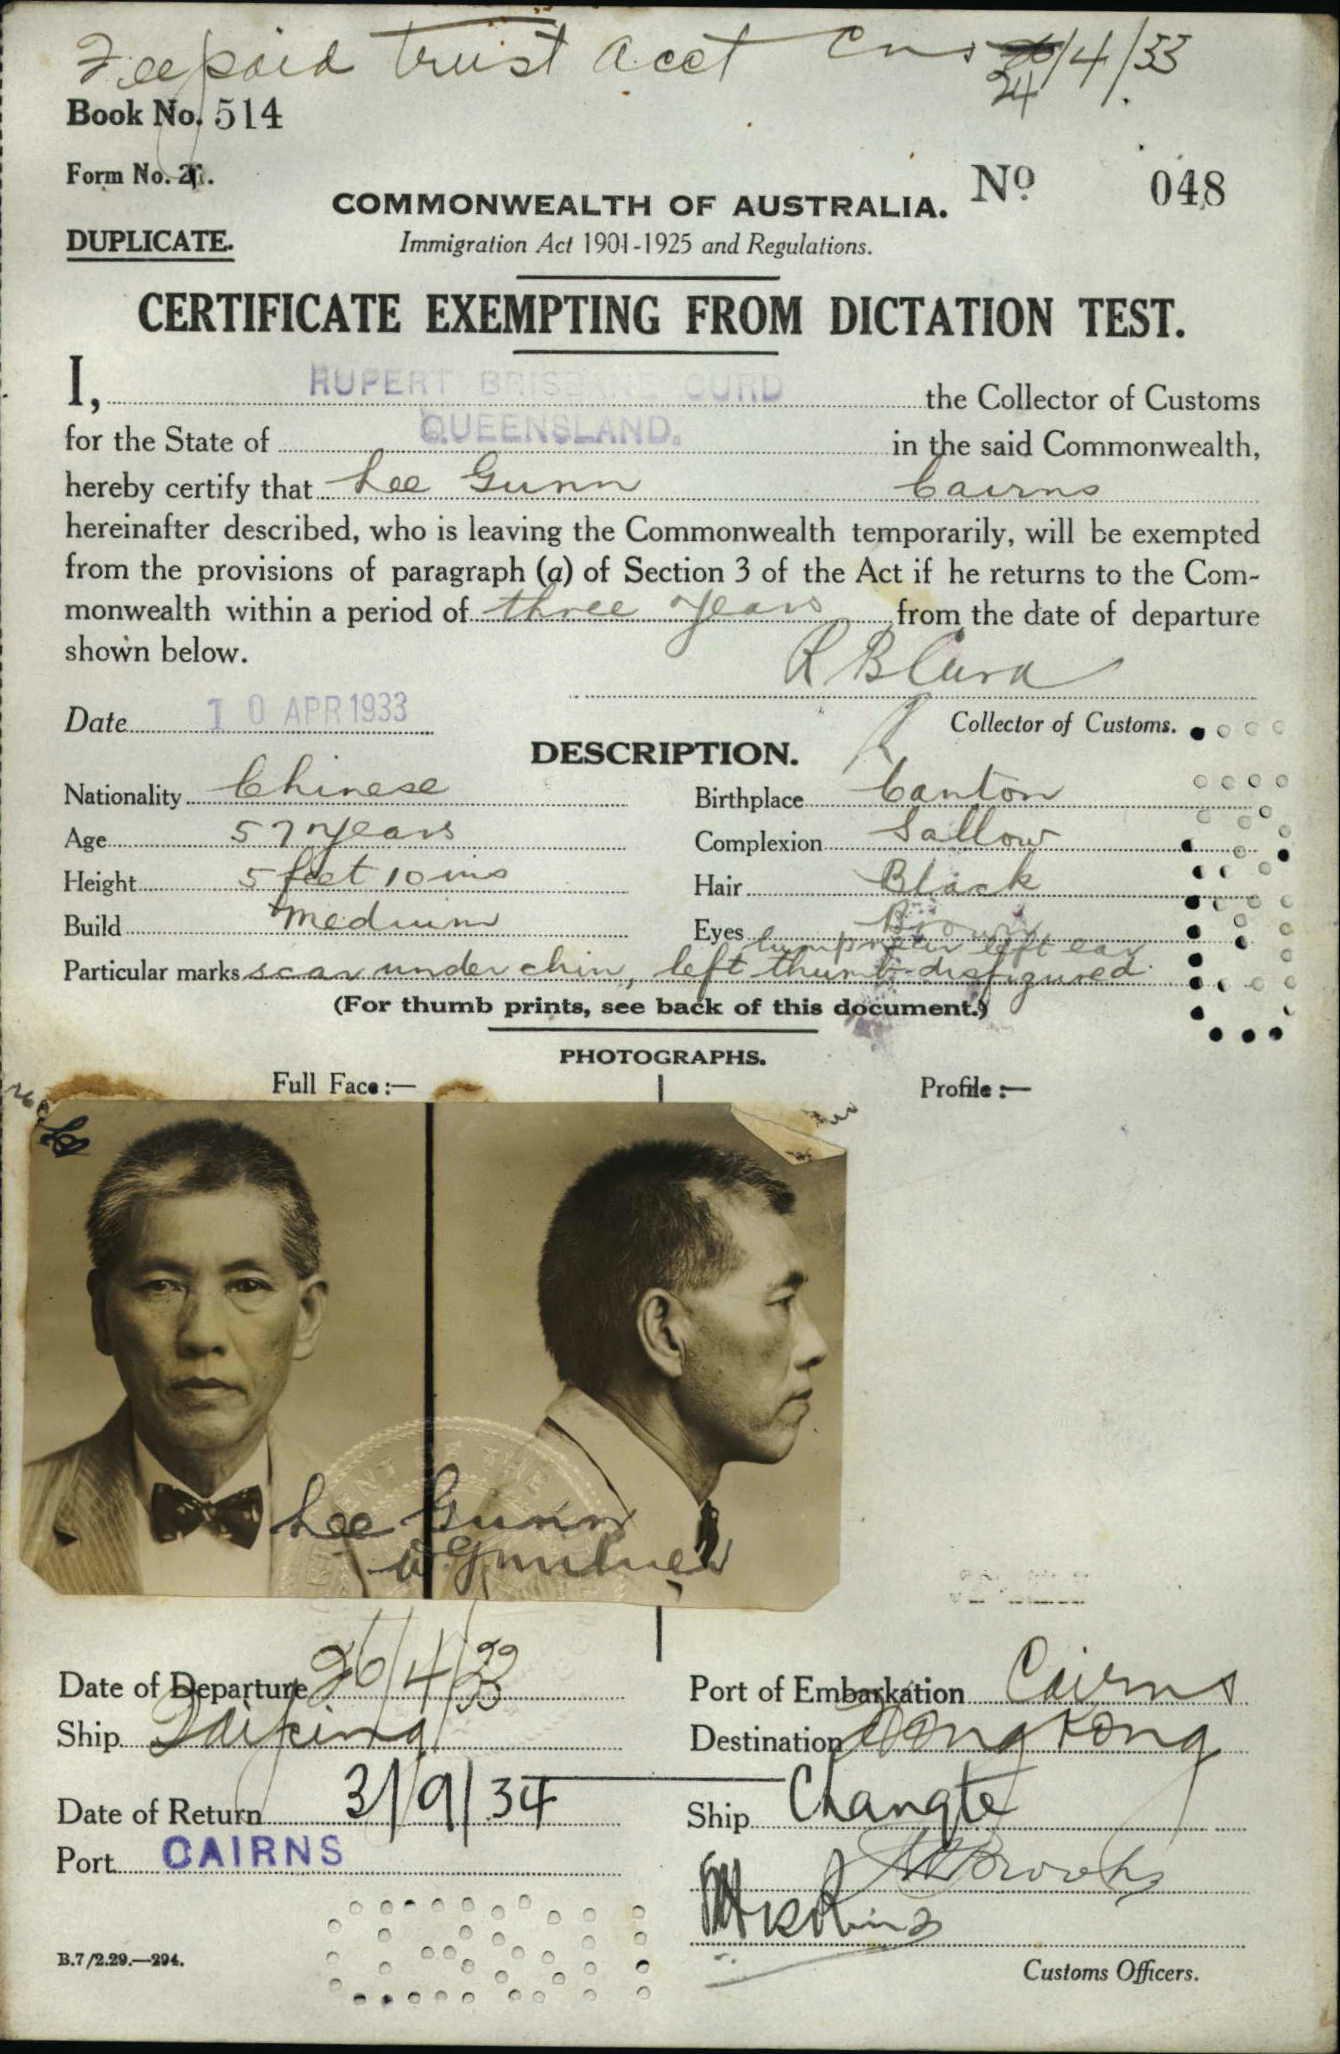 Fee paid trust acct Cns 24/4/33
Book No. 514
Form No. 21.
COMMONWEALTH OF AUSTRALIA. No 048
DUPLICATE.
Immigration Act 1901-1925 and Regulations.
CERTIFICATE EXEMPTING FROM DICTATION TEST.
I, RUPERT BRISBANE CURD the Collector of Customs
for the State of QUEENSLAND. in the said Commonwealth,
hereby certify that Lee Gunn Cairns
hereinafter described, who is leaving the Commonwealth temporarily, will be exempted
from the provisions of paragraph (a) of Section 3 of the Act if he returns to the Com-
monwealth within a period of three years from the date of departure
shown below.
R B Curd
Date 10 APR 1933
Collector of Customs.
DESCRIPTION.
Nationality Chinese Birthplace Canton
Age 57 years Complexion Sallow
Height 5 feet 10 ins Hair Black
Build medium Eyes Brown
lump near left ear
Particular marks scar under chin, left thumb disfigured
(For thumb prints, see back of this document.)
PHOTOGRAPHS.
Full Face :— Profile :—
Lee Gunn
Date of Departure 26/4/33 Port of Embarkation Cairns
Ship Taiping Destination Hong Kong
Date of Return 3/9/34 Ship Changte
Port CAIRNS
B.7/2.29.—294.
Customs Officers.